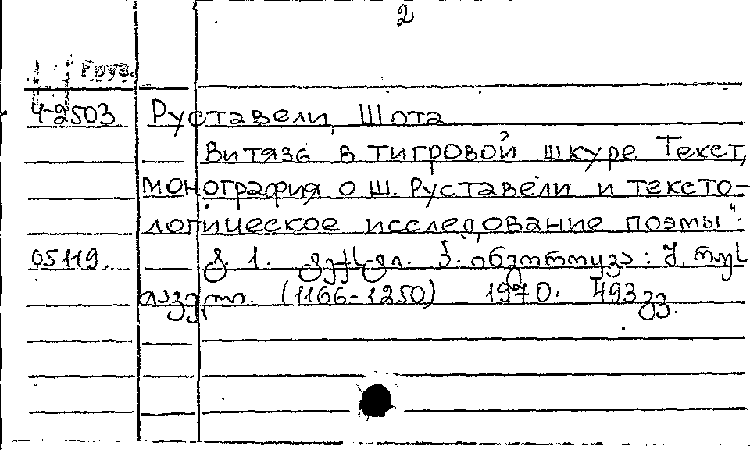 2
Груз.
4-2503 Руставели, Шота
Витязь в тигровой шкуре. Текст,
монография о Ш. Руставели и тексто-
логическое исследование поэмы":
05119. ტ. 1.
(1166-1250) 1970. 493 გვ.